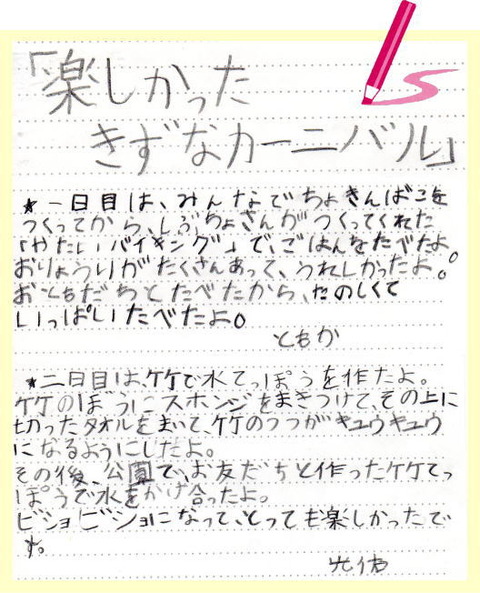 「楽しかった
きずなカーニバル」
★一日目は、みんなでちょきんばこを
つくってから、しぶちょさんがつくってくれた
「やたいバイキング」で、ごはんをたべたよ。
おりょうりがたくさんあって、うれしかったよ。
おともだちとたべたから、たのしくて
いっぱいたべたよ。
ともか
★二日目は、竹で水てっぽうを作たよ。
竹のぼうにスポンジをまきつけて、その上に
切ったタオルをまいて、竹のつつがキュウキュウ
になるようにしたよ。
その後、公園で、お友だちと作った竹てっ
ぽうで水をかけ合ったよ。
ビショビショになって、とっても楽しかったで
す。